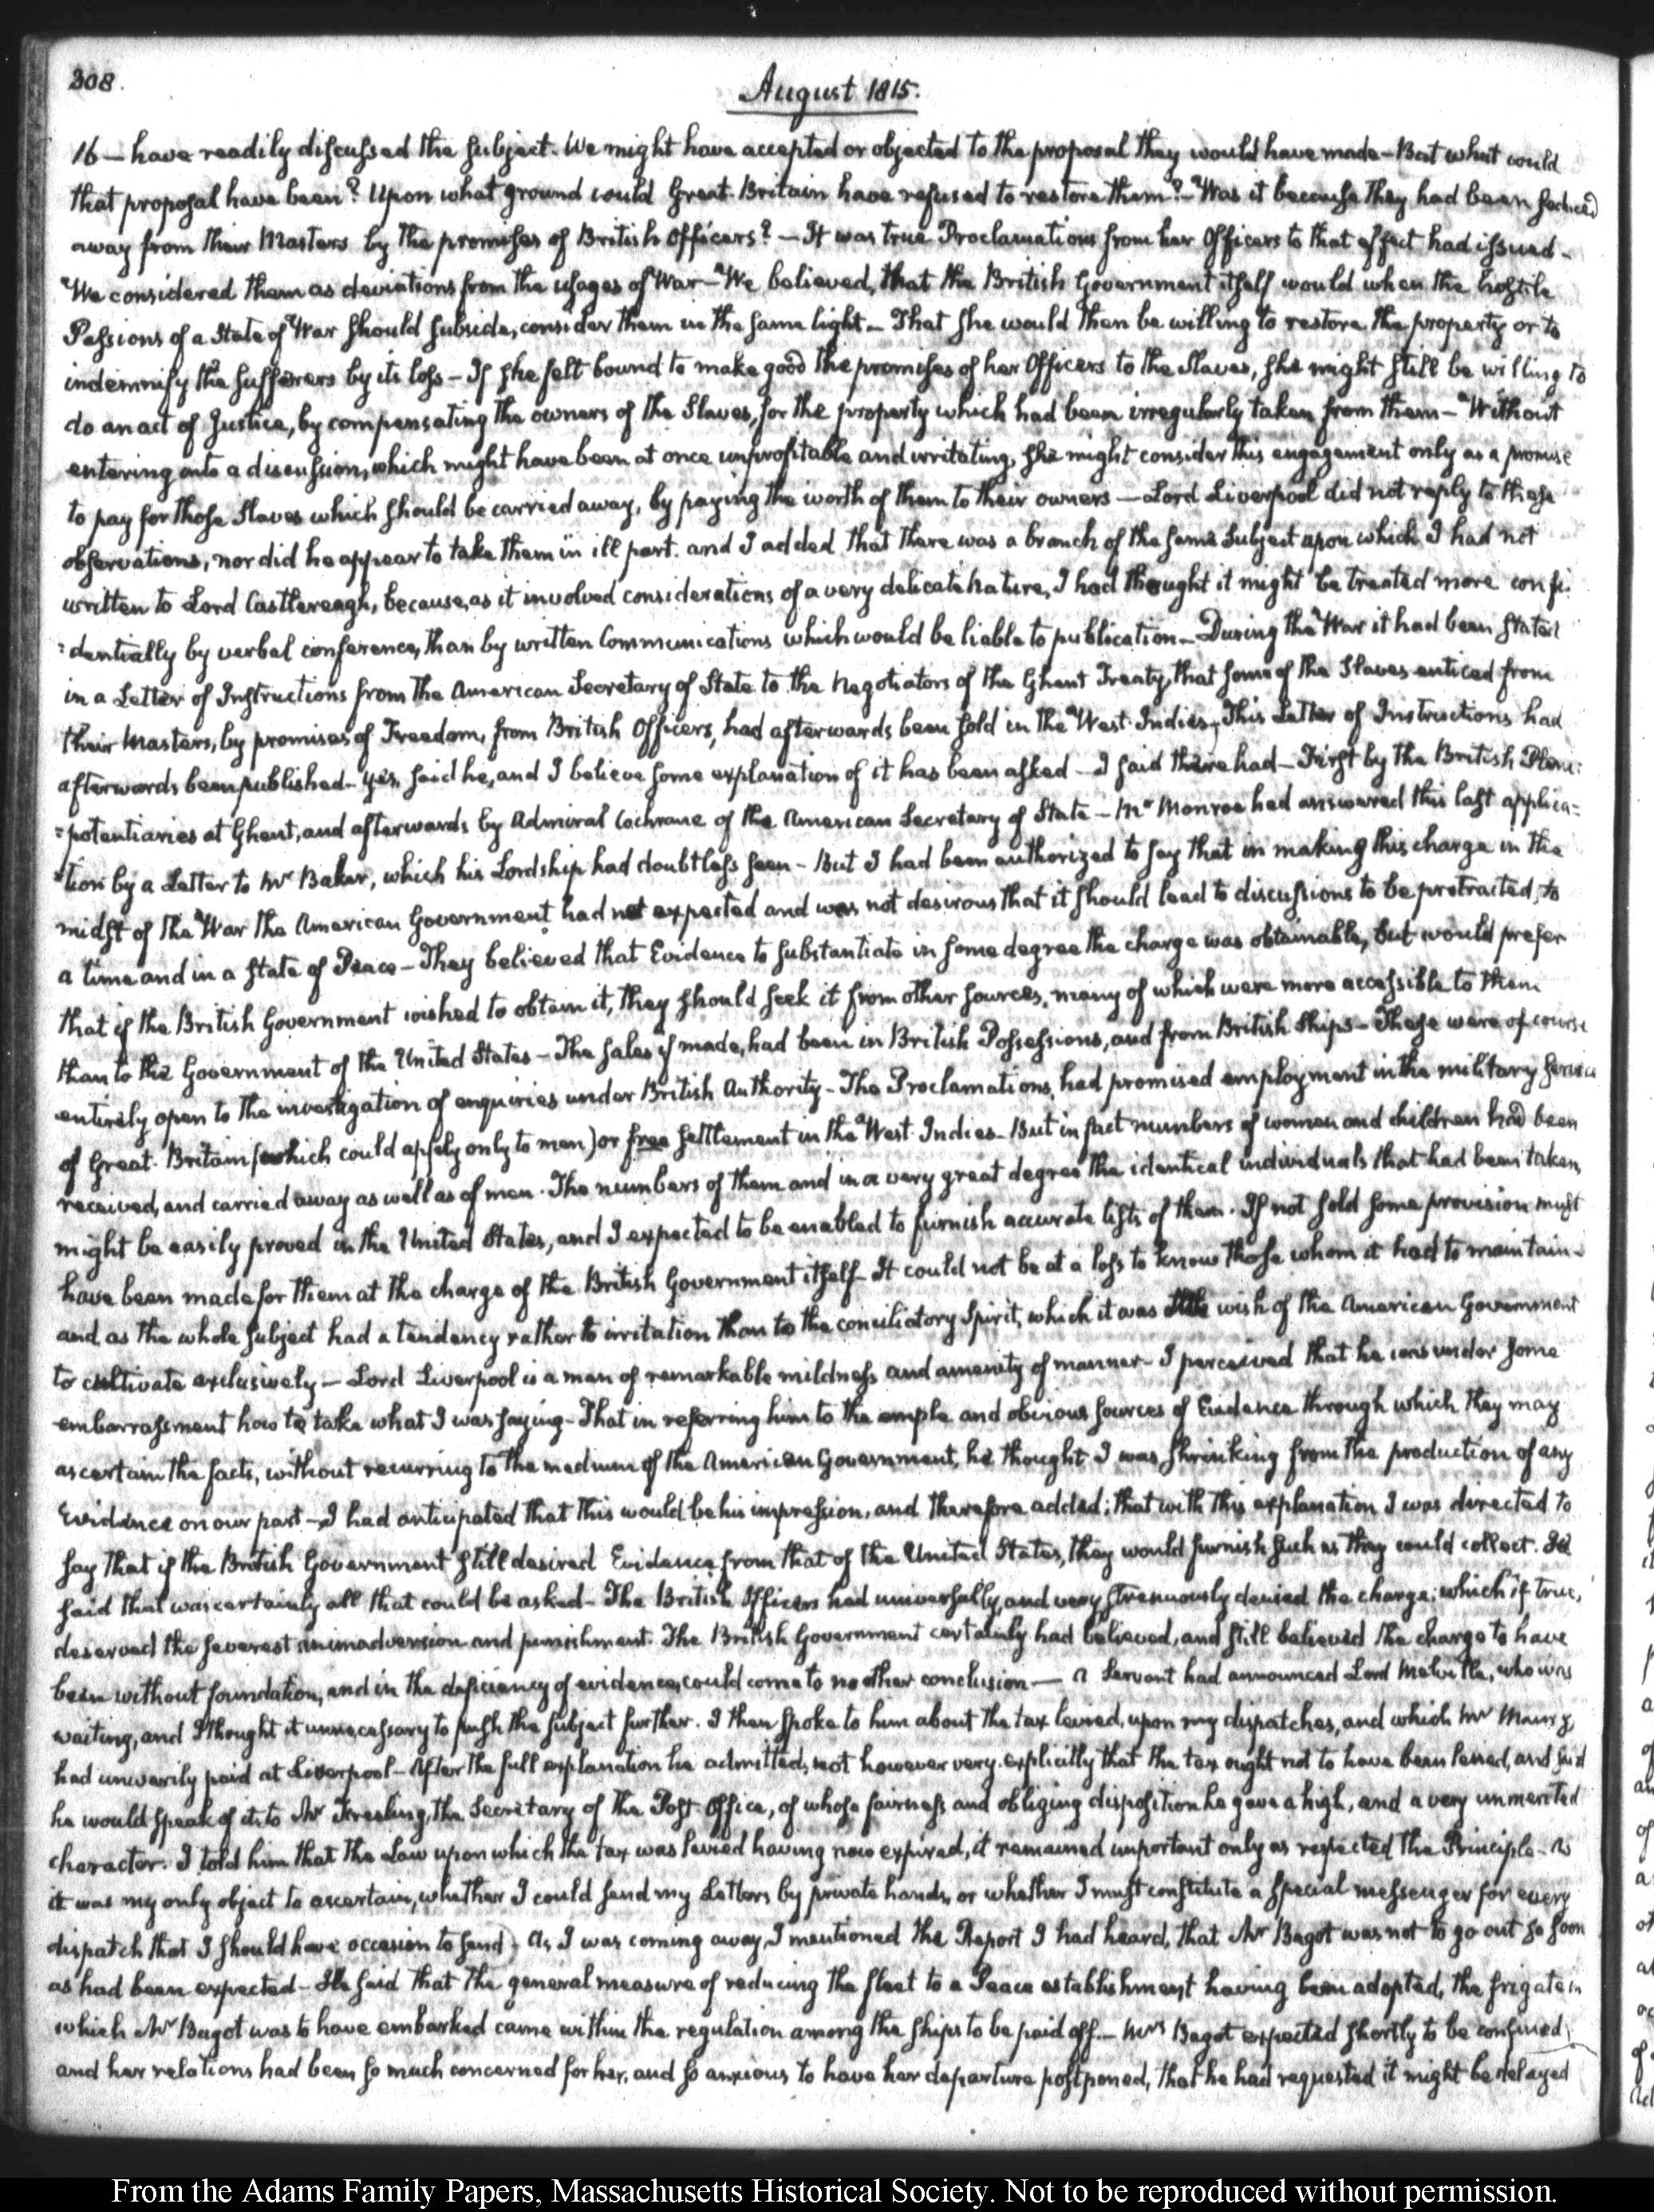 308.
August 1815.
16 — have readily discussed the subject. We might have accepted or objected to the proposal they would have made — But what could
that proposal have been? Upon what ground could Great-Britain have refused to restore them? — Was it because they had been seduced
away from their Masters by the promises of British Officers? — It was true Proclamations from her Officers to that effect had issued —
We considered them as deviations from the usages of War — We believed, that the British Government itself would when the hostile
Passions of a State of War should subside, consider them in the same light — That she would then be willing to restore the property or to
indemnify the sufferers by its loss — If she felt bound to make good the promises of her Officers to the Slaves, she might still be willing to
do an act of Justice, by compensating the owners of the Slaves, for the property which had been irregularly taken from them — Without
entering into a discussion, which might have been at once unprofitable and irritating, she might consider this engagement only as a promise
to pay for those Slaves which should be carried away, by paying the worth of them to their owners — Lord Liverpool did not reply to these
observations, nor did he appear to take them in ill part. and I added that there was a branch of the same Subject upon which I had not
written to Lord Castlereagh, because, as it involved considerations of a very delicate nature, I had thought it might be treated more confi:
:dentially by verbal conference, than by written Communications which would be liable to publication — During the War it had been stated
in a Letter of Instructions from the American Secretary of State to the Negotiators of the Ghent Treaty, that some of the Slaves enticed from
their Masters, by promises of Freedom, from British Officers, had afterwards been sold in the West-Indies, This Letter of Instructions had
afterwards been published — yes, said he, and I believe some explanation of it has been asked — I said there had — First by the British Pleni:
:potentiaries at Ghent, and afterwards by Admiral Cochrane of the American Secretary of State — Mr Monroe had answered this last applica=
=tion by a Letter to Mr Baker, which his Lordship had doubtless seen — But I had been authorized to say that in making this charge in the
midst of the War the American Government had not expected and was not desirous that it should lead to discussions to be protracted, to
a time and in a state of Peace — They believed that Evidence to substantiate in some degree the charge was obtainable, but would prefer
that if the British Government wished to obtain it, they should seek it from other sources, many of which were more accessible to them
than to the Government of the United States — The sales if made, had been in British Possessions, and from British Ships — These were of course
entirely open to the investigation of enquiries under British Authority — The Proclamations, had promised employment in the military service
of Great-Britain (which could apply only to men) or free settlement in the West-Indies — But in fact numbers of women and children had been
received, and carried away as well as of men. The numbers of them and in a very great degree the identical individuals that had been taken,
might be easily proved in the United States, and I expected to be enabled to furnish accurate lists of them. If not sold some provision must
have been made for them at the charge of the British Government itself — It could not be at a loss to know those whom it had to maintain —
and as the whole subject had a tendency rather to irritation than to the conciliatory Spirit, which it was the wish of the American Government
to cultivate exclusively — Lord Liverpool is a man of remarkable mildness and amenity of manner — I perceived that he was under some
embarrassment how to take what I was saying — That in referring him to the ample and obvious sources of Evidence through which they may
ascertain the facts, without recurring to the medium of the American Government, he thought I was shrinking from the production of any
Evidence on our part — I had anticipated that this would be his impression, and therefore added; that with this explanation I was directed to
say that if the British Government still desired Evidence from that of the United States, they would furnish such as they could collect. He
said that was certainly all that could be asked — The British Officers had universally, and very strenuously denied the charge; which if true,
deserved the severest animadversion and punishment. The British Government certainly had believed, and still believed the charge to have
been without foundation, and in the deficiency of evidence, could come to no other conclusion — A Servant had announced Lord Melville, who was
waiting, and I thought it unnecessary to push the subject further. I then spoke to him about the tax levied, upon my dispatches, and which Mr Maury,
had unwarily paid at Liverpool — After the full explanation he admitted, not however very explicitly that the tax ought not to have been levied, and said
he would speak of it to Mr Freeling, the Secretary of the Post-Office, of whose fairness and obliging disposition he gave a high, and a very unmerited
character. I told him that the Law upon which the tax was levied having now expired, it remained important only as respected the Principle — As
it was my only object to ascertain, whether I could send my Letters by private hands, or whether I must constitute a special messenger for every
dispatch that I should have occasion to send — As I was coming away, I mentioned the Report I had heard, that Mr Bagot was not to go out so soon
as had been expected — He said that the general measure of reducing the fleet to a Peace establishment having been adopted, the frigate in
which Mr Bagot was to have embarked came within the regulation among the ships to be paid off. — Mrs Bagot expected shortly to be confined,
and her relations had been so much concerned for her, and so anxious to have her departure postponed, that he had requested it might be delayed
From the Adams Family Papers, Massachusetts Historical Society. Not to be reproduced without permission.